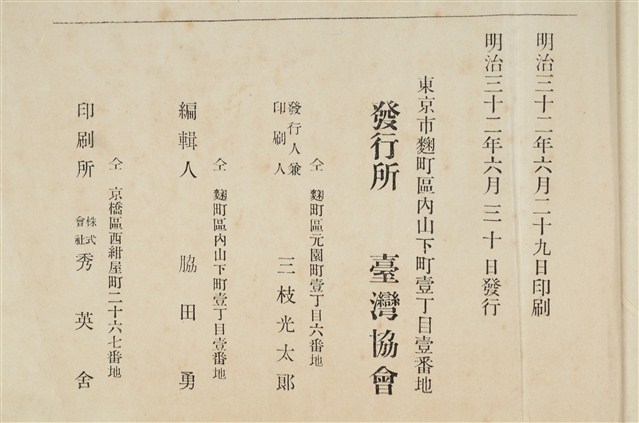 明治三十二年六月二十九日印刷
明治三十二年六月三十日發行
東京市麴町區內山下町壹丁目壹番地
發行所 臺灣協會
仝 麴町區元園町壹丁目六番地
發行人兼印刷人 三枝光太郎
仝 麴町區內山下町壹丁目壹番地
編輯人 脇田勇
仝 京橋區西紺屋町二十六七番地
印刷所 株式會社 秀英舍